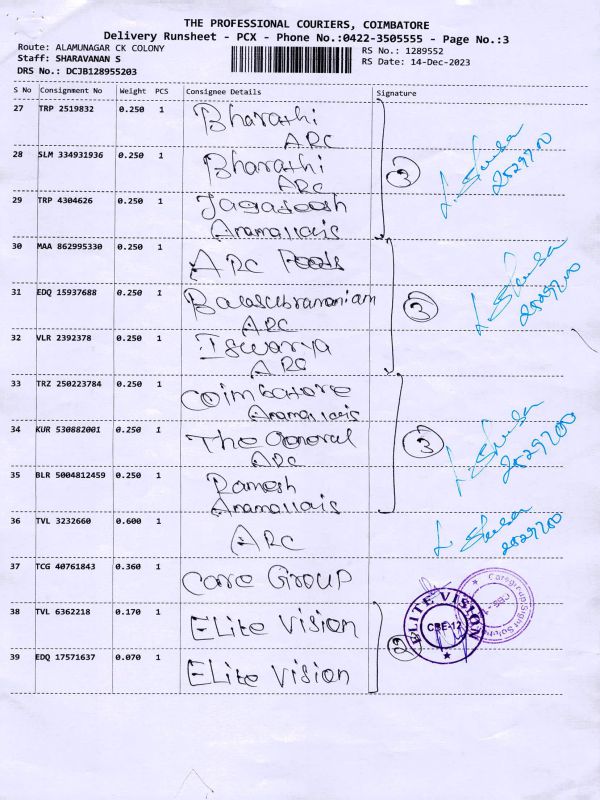 THE PROFESSIONAL COURIERS, COIMBATORE
Delivery Runsheet - PCX - Phone No.:0422-3505555 - Page No.:3
Route: ALAMUNAGAR CK COLONY
Staff: SHARAVANAN S
DRS No.: DCJB128955203
RS No.: 1289552
RS Date: 14-Dec-2023
S No Consignment No Weight PCS Consignee Details Signature
27 TRP 2519832 0.250 1 Bharathi
ARC
28 SLM 334931936 0.250 1 Bharathi
ARC
3
29 TRP 4304626 0.250 1 Jagadeesh
Anamallais
30 MAA 862995330 0.250 1 ARC Foods
31 EDQ 15937688 0.250 1 Balasubramaniam
ARC
3
32 VLR 2392378 0.250 1 Iswarya
ARC
33 TRZ 250223784 0.250 1 Coimbatore
Anamallais
34 KUR 530882001 0.250 1 The General
ARC
3
35 BLR 5004812459 0.250 1 Ramesh
Anamallais
36 TVL 3232660 0.600 1 ARC
37 TCG 40761843 0.360 1 Care Group
38 TVL 6362218 0.170 1 Elite Vision
2
39 EDQ 17571637 0.070 1 Elite Vision
ELITE VISION
CBE-12